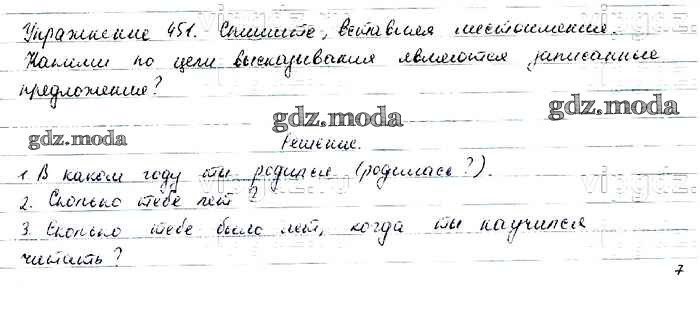 Упражнение 451. Спишите, вставляя местоимения.
Какими по цели высказывания являются записанные
предложения?
gdz.moda
gdz.moda
gdz.moda
Решение.
1. В каком году ты родился (родилась?).
2. Сколько тебе лет?
3. Сколько тебе было лет, когда ты научился
читать?
7